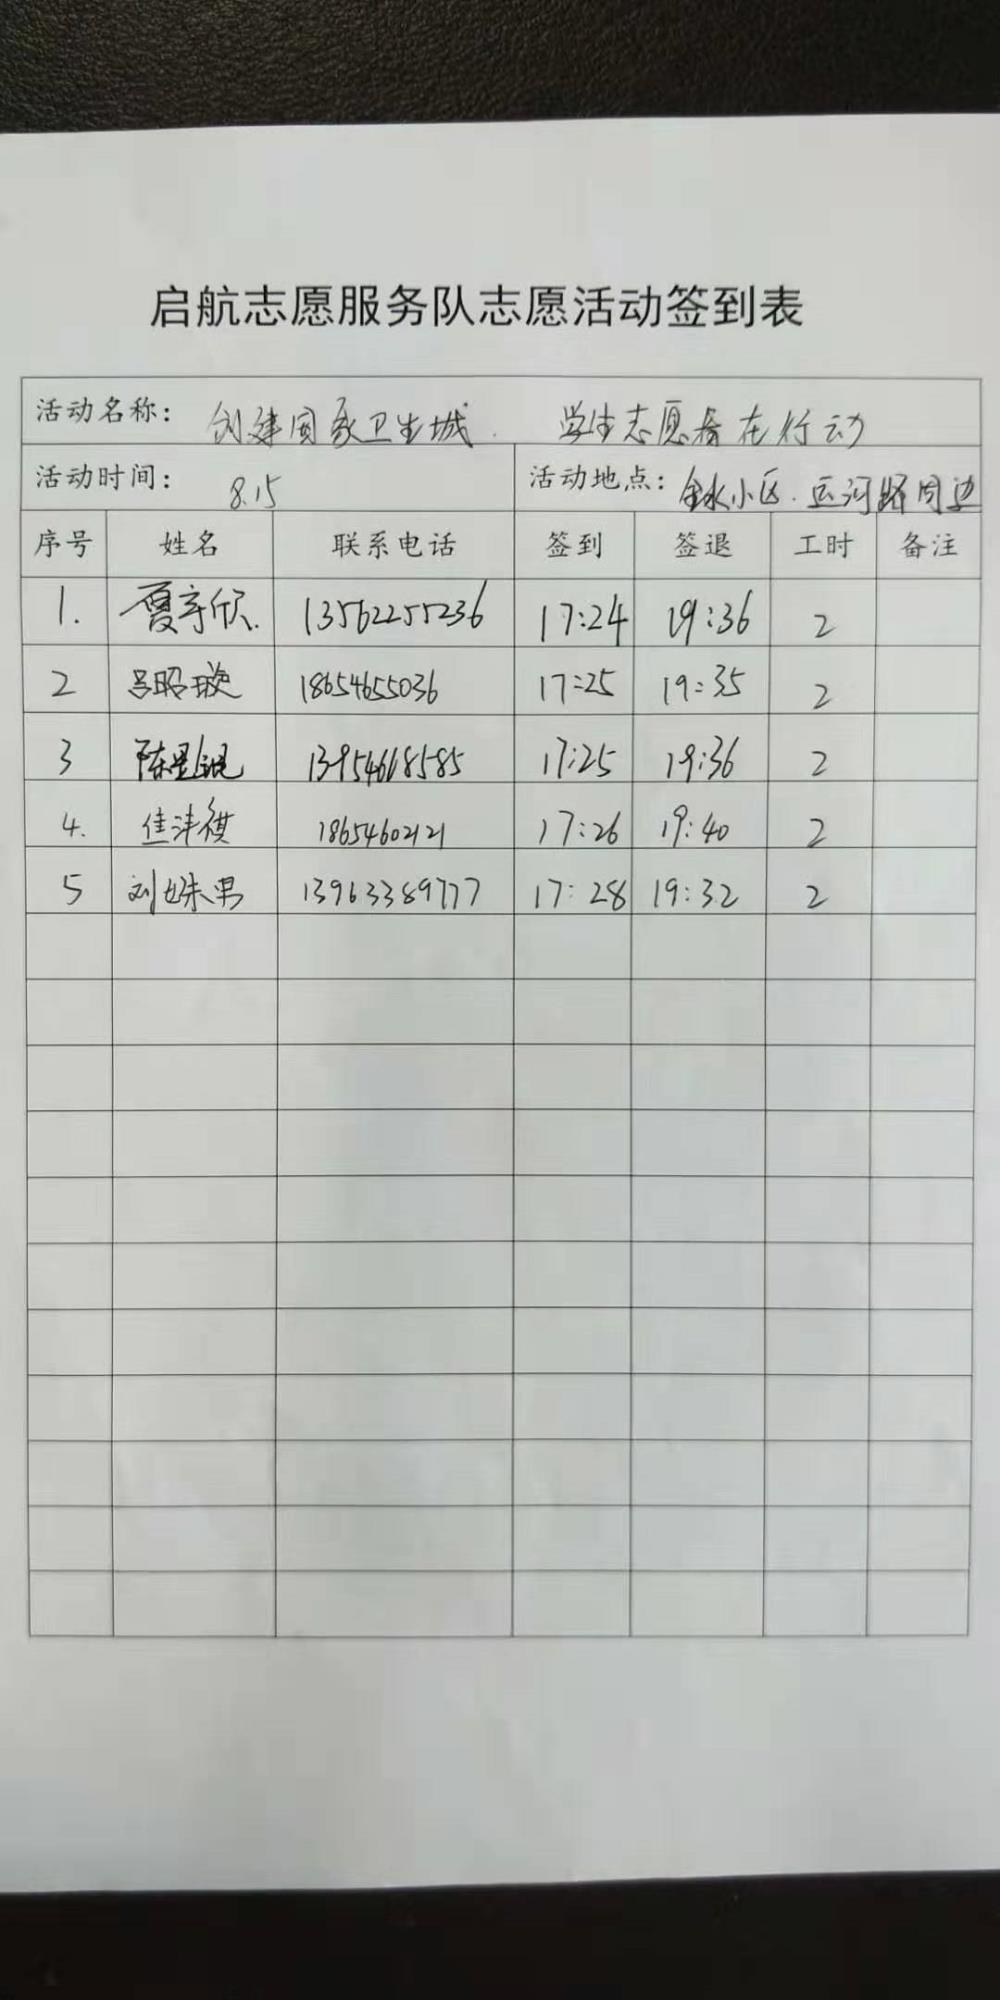 启航志愿服务队志愿活动签到表
活动名称: 创建国家卫生城. 学生志愿者在行动
活动时间: 8.15 活动地点: 金水小区.运河路周边
序号 姓名 联系电话 签到 签退 工时 备注
1. 夏 欣. 13562255236 17:24 19:36 2
2 吕昭璇 18654655036 17:25 19:35 2
3 陈 13954618585 17:25 19:36 2
4. 佳沣祺 18654602121 17:26 19:40 2
5 刘姝男 13963389777 17:28 19:32 2